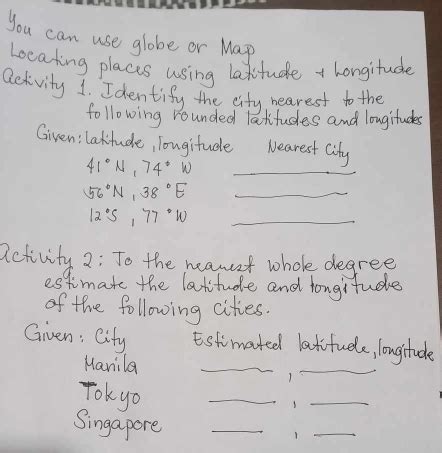 You can use globe or Map
Locating places using latitude & Longitude
activity 1. Identify the city nearest to the
following rounded latitudes and longitudes
Given: latitude, longitude Nearest City
41°N, 74° W
56°N, 38°E
12°S, 77°W
activity 2: To the nearest whole degree
estimate the latitude and longitude
of the following cities.
Given: City Estimated latitude, longitude
Manila ,
Tokyo ,
Singapore ,